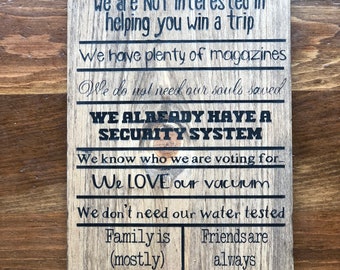 We are NOT interested in
helping you win a trip
We have plenty of magazines
We do not need our souls saved
WE ALREADY HAVE A
SECURITY SYSTEM
We know who we are voting for...
We LOVE our vacuum
We don't need our water tested
Family is
(mostly)
Friends are
always